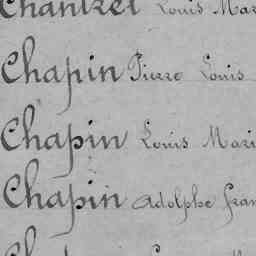 Chantrel Louis Mar
Chapin Pierre Louis
Chapin Louis Mari
Chapin Adolphe fran